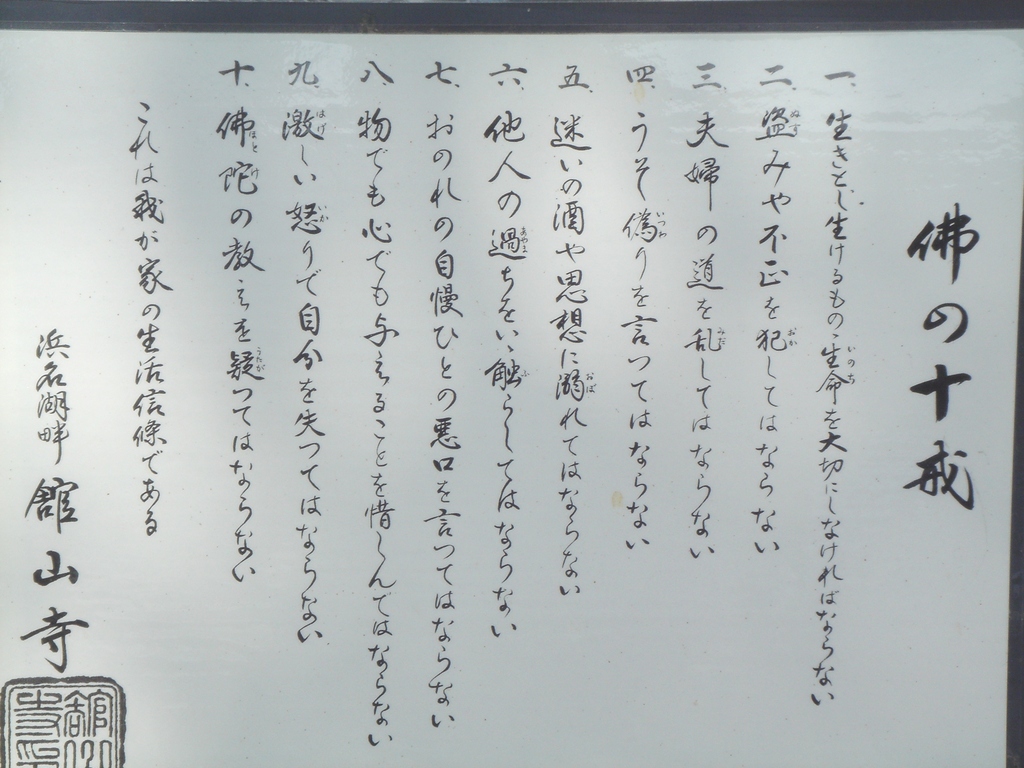 佛の十戒
一、生きとし生けるもの、生命を大切にしなければならない
二、盗みや不正を犯してはならない
三、夫婦の道を乱してはならない
四、うそ偽りを言ってはならない
五、迷いの酒や思想に溺れてはならない
六、他人の過ちをいい触らしてはならない
七、おのれの自慢ひとの悪口を言ってはならない
八、物でも心でも与えることを惜しんではならない
九、激しい怒りで自分を失ってはならない
十、佛陀の教えを疑ってはならない
これは我が家の生活信條である
浜名湖畔 舘山寺